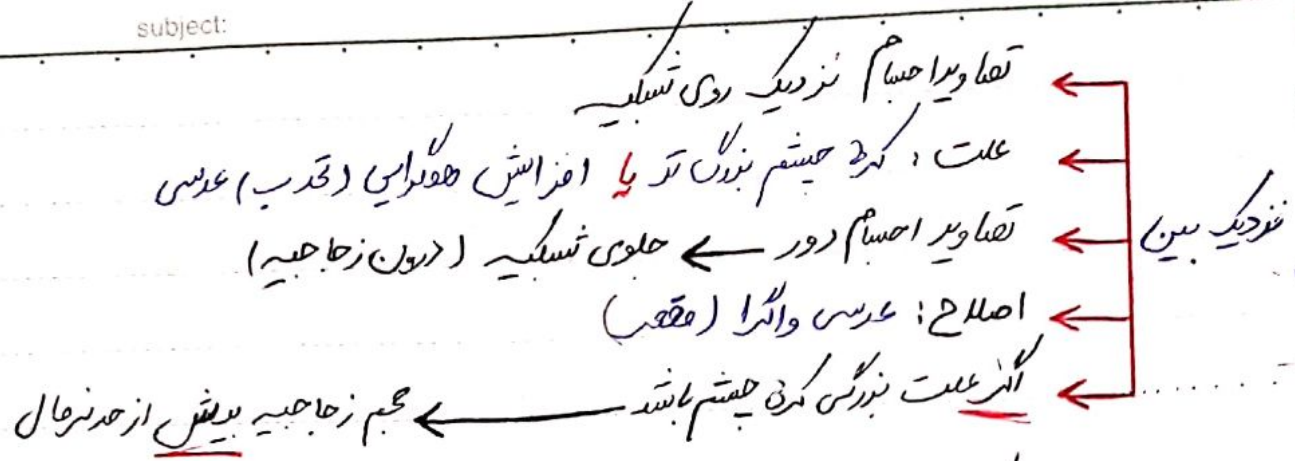 subject:
تصاویر اجسام نزدیک روی شبکیه
علت: کرهٔ چشم بزرگ تر یا افزایش همگرایی (تحدب) عدسی
نزدیک بین
تصاویر اجسام دور ← جلوی شبکیه (درون زجاجیه)
اصلاح: عدسی واگرا (مقعر)
اگر علت بزرگی کرهٔ چشم باشد ← حجم زجاجیه بیش از حد نرمال